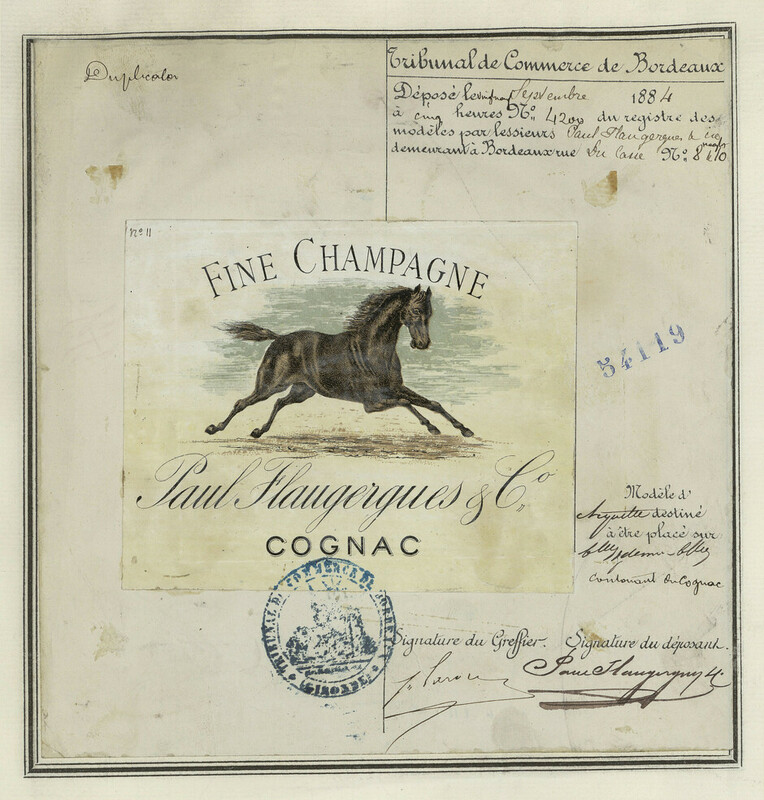 Duplicata
Tribunal de Commerce de Bordeaux
Déposé le Septembre 1884
à cinq heures No: 4200 du registre des
modèles par les sieurs Paul Flaugergues &
demeurant à Bordeaux rue No: 8 10
No 11
FINE CHAMPAGNE
54119
Paul Flaugergues & Co
COGNAC
Modèle d'
étiquette destiné
à être placé sur
blles & demi-blles
contenant du Cognac
TRIBUNAL DE COMMERCE DE BORDEAUX
(GIRONDE)
Signature du Greffier. Signature du déposant.
Paul Flaugergues &